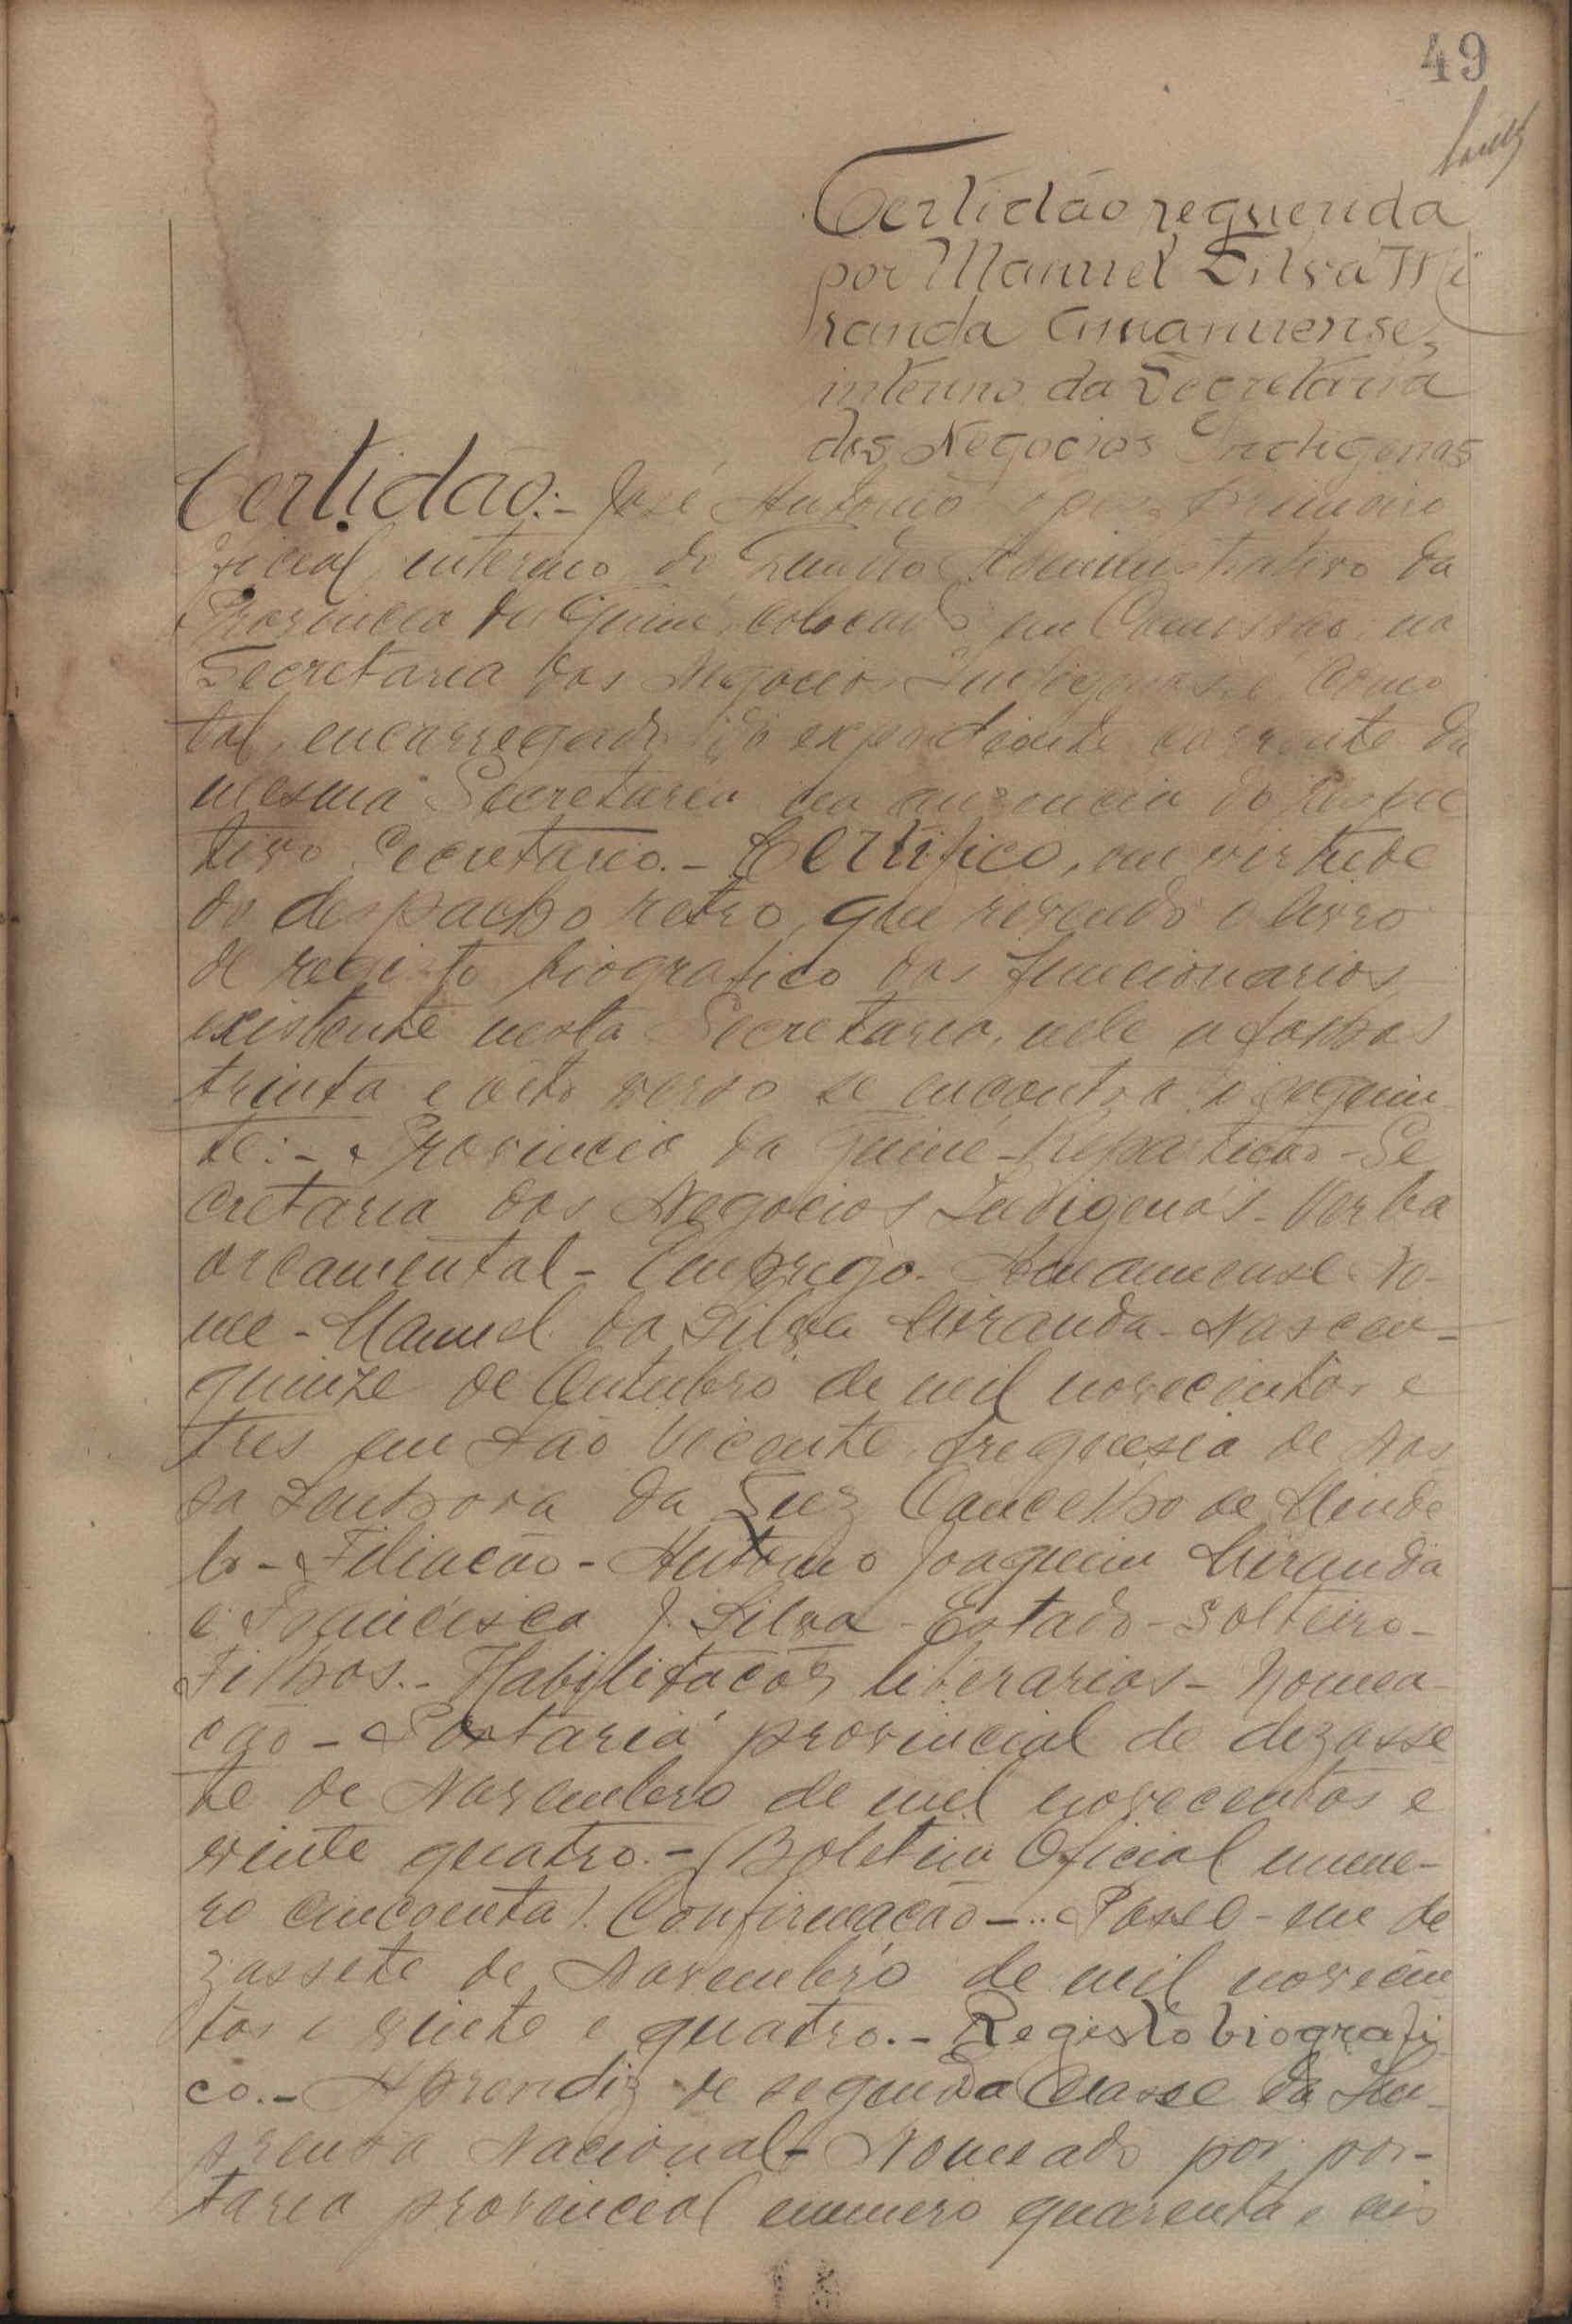 49
Certidão requerida
por Manuel Silva Mi
randa Amanuense,
interino da Secretaria
dos Negocios Indigenas
Certidão:- José Antonio Lopes primeiro
oficial, interino do Quadro Administrativo da
Provincia da Guiné, colocado em Comissão na
Secretaria dos Negocios Indigenas e como
tal, encarregado do expediente corrente da
mesma Secretaria na ausencia do respec
tivo Secretario.- Certifico, em virtude
do despacho retro, que revendo o livro
de registo biografico dos funcionarios
existente nesta Secretaria, nele a folhas
trinta e oito verso se encontra o seguin
te:- Provincia da Guiné-Repartição-Se
cretaria dos Negocios Indigenas- Verba
orçamental- Emprego- Amanuense-No-
me-Manuel da Silva Miranda-Nasceu-
quinze de Outubro de mil novecentos e
tres em São Vicente, freguesia de Nos
sa Senhora da Luz Concelho de Minde
lo-Filiação-Antonio Joaquim Miranda
e Francisca J. Silva-Estado-Solteiro-
Filhos.-Habilitações literarias-Nomea-
ção-Portaria provincial de dezasse
te de Novembro de mil novecentos e
vinte quatro.-(Boletim Oficial nume-
ro cincoenta). Confirmação-..Posse-em de
zassete de Novembro de mil novecen
tos e vinte e quatro.-Registo biografi
co.-Aprendiz de segunda classe da Im-
prensa Nacional-Nomeado por por-
taria provincial numero quarenta e seis